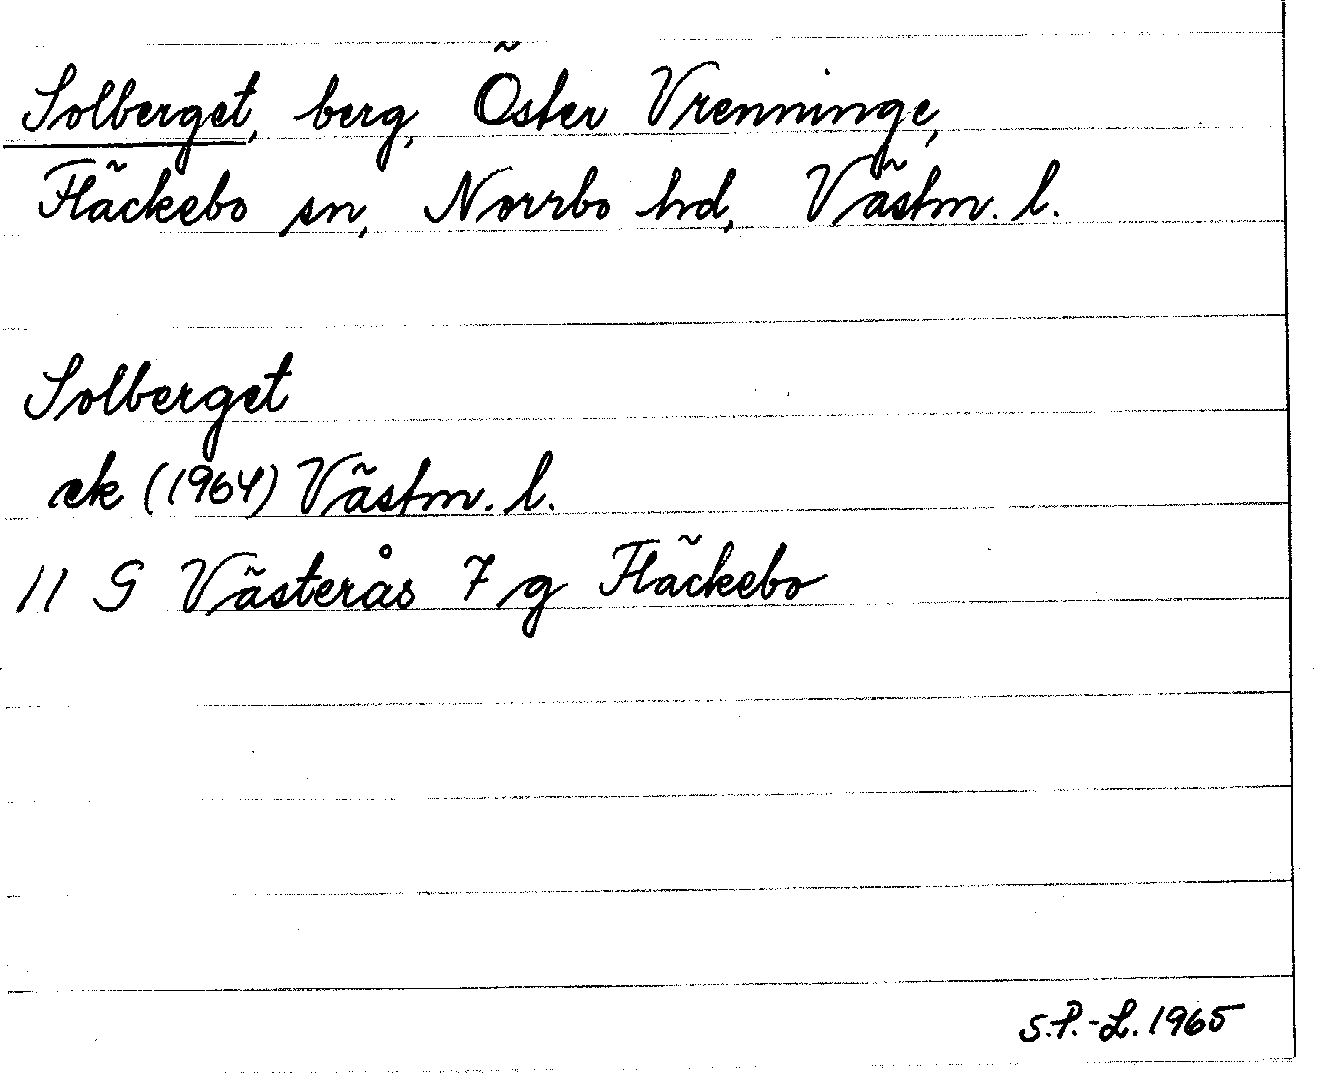 Solberget, berg, Öster Vrenninge,
Fläckebo sn, Norrbo hd, Västm. l.
Solberget
ek (1964) Västm. l.
11 G Västerås 7 g Fläckebo
S.P.-L. 1965